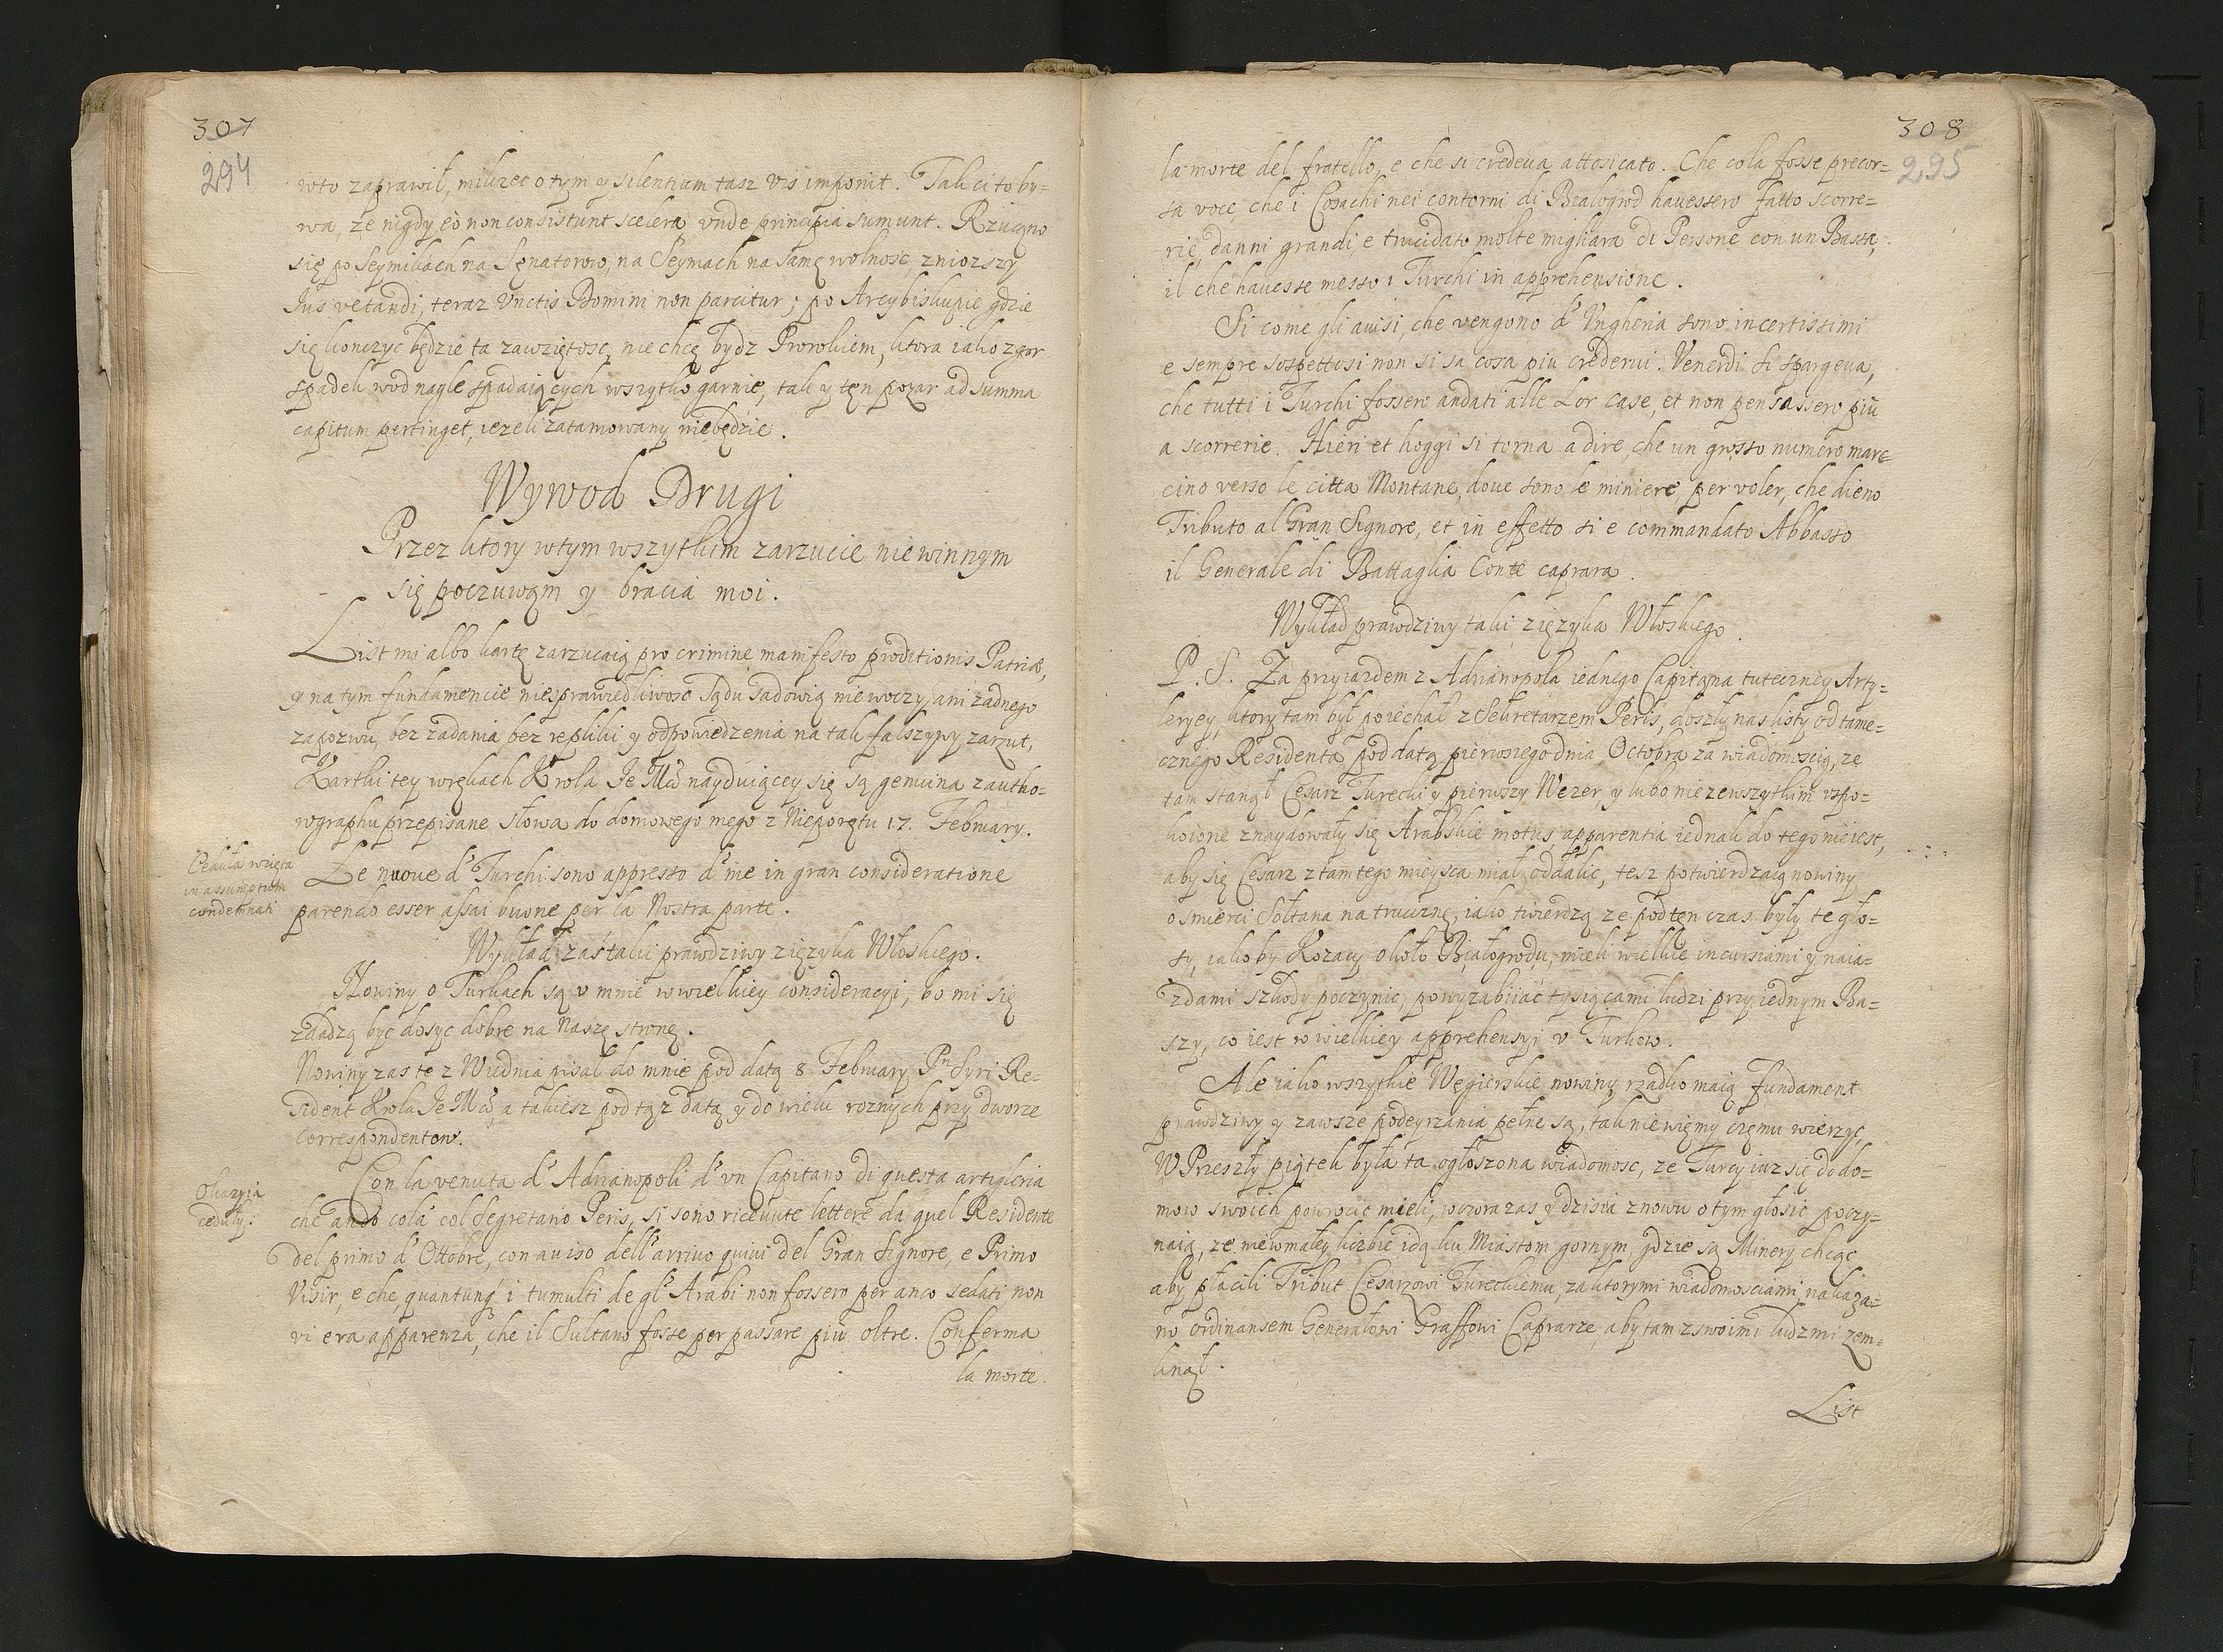 307
294
wto zaprawił, milczec o tym y silentium tasz vis imponit. Tak ci to by=
wa, ze nigdy eò non consistunt scelera, vnde principia sumunt. Rzucono
się po Seymikach na Senatorow, na Seymach na samę wolnosc, zniozszy
Ius vetandi, teraz Vnctis Domini non parcitur; po Arcybiskupie gdzie
się konczyc będzie ta zawziętosc, nie chcę bydz Prorokiem, ktora iako z gor
spadek wod nagle spadaiących wszytko garnie, tak y ten pozar ad summa
capitum pertinget, iezeli zatamowany niebędzie.
Wywod Drugi
Przez ktory wtym wszytkim zarzucie niewinnym
się poczuwam y bracia moi.
List mi albo kartę zarzucaią pro crimine manifesto proditionis Patriæ,
y na tym fundamencie niesprawiedliwosc sądu sadowią nie woczy, ani zadnego
zapozwu, bez zadania bez repliki y odpowiedzenia na tak falszywy zarzut,
Kartki tey wrękach Krola Je Mci nayduiącey się są genuina z autho=
wgraphu przepisane słowa do domowego mego z Nieporętu 17. February.
Cedula wzięta
in assumptum
condemnati
Le nuoue d' Turchi sono appresso d' me in gran consideratione
parendo esser assai buone per la Nostra parte.
Wykład zaś taki prawdziwy z ięzyka Włoskiego.
Nowiny o Turkach są v mnie w wielkiey consideracyi, bo mi się
zdadzą byc dosyc dobre na Naszę stronę.
Nowiny zas te z Wiednia pisał do mnie pod datą 8 February Pn Syri Re=
sident Krola Je Mci, a takiesz pod tąz datą y do wielu roznych przy dworze
Correspondentow.
Okazyia
ceduły.
Con la venuta d' Adrianopoli d' vn Capitano di questa artigleria
che ando colà col Segretario Peris, si sono riceuute lettere da quel Residente
del primo d' Ottobre, con auiso dell'arriuo quiui del Gran Signore, e Primo
Visir, e che, quantunq' i tumulti de gl' Arabi non fossero per anco sedati, non
vi era apparenza, che il Sultano fosse per passare più oltre. Conferma
la morte.
308
295
la morte del fratello, e che si credeua attosicato. Che cola fosse precor=
sa voce, che i Cosachi nei contorni di Bialogrod hauessero fatto scorre=
rie, danni grandi, e trucidato molte migliara di Persone con un Bassa,
il che hauesse messo i Turchi in apprehensione.
Si come gli auisi, che vengono d' Vngheria sono incertissimi
e sempre sospettosi non si sa cosa piu crederui. Venerdi si spargeua,
che tutti i Turchi fossero andati alle Lor case, et non pensassero più
a scorrerie. Hieri et hoggi si torna a dire, che un grosso numero mar=
cino verso le citta Montane, doue sono le miniere, per voler, che dieno
Tributo al Gran Signore, et in effetto si e commandato Abbasso
il Generale di Battaglia Conte caprara.
Wykład prawdziwy taki z ięzyka Włoskiego.
P. S. Za przyiazdem z Adrianopola iednego Capitana tuteczney Arty=
leryey, ktory tam był poiechał z Sekretarzem Peris, doszły nas listy od tame=
cznego Residenta pod datą pierwszego dnia Octobra za wiadomoscią, ze
tam stanął Cesarz Turecki y pierwszy Wezer, y lubo nie ze wszytkim vspo=
koione znaydowały się Arabskie motus, apparentia iednak do tego nieiest,
aby się Cesarz z tamtego mieysca miał oddalic, tesz potwierdzaią nowiny
o smierci Sołtana na truciznę, iako twierdzą ze pod ten czas były te gło=
sy, iakoby Kozacy około Białogrodu, mieli wielkie incursiami y naia=
zdami szkody poczynic, powyzabiiac tysiącami ludzi przy iednym Ba=
szy, co iest w wielkiey apprehensyi v Turkow.
Ale iako wszytkie Węgierskie nowiny rzadko maią fundament
prawdziwy y zawsze podeyrzania pełne są, tak nie wiemy czemu wierzyc,
W Przeszły piątek była ta ogłoszona wiadomosc, ze Turcy iuz się do do=
mow swoich powrocic mieli, wczora zas y dzisia znowu o tym głosic poczy=
naią, ze niewmałey liczbie idą ku Miastom gornym, gdzie są Minery chcąc
aby płacili Tribut Cesarzowi Tureckiemu, za ktorymi wiadomosciami nakaza=
no ordinansem Generałowi Graffowi Caprarze, aby tam z swoimi ludzmi zem=
knął.
List